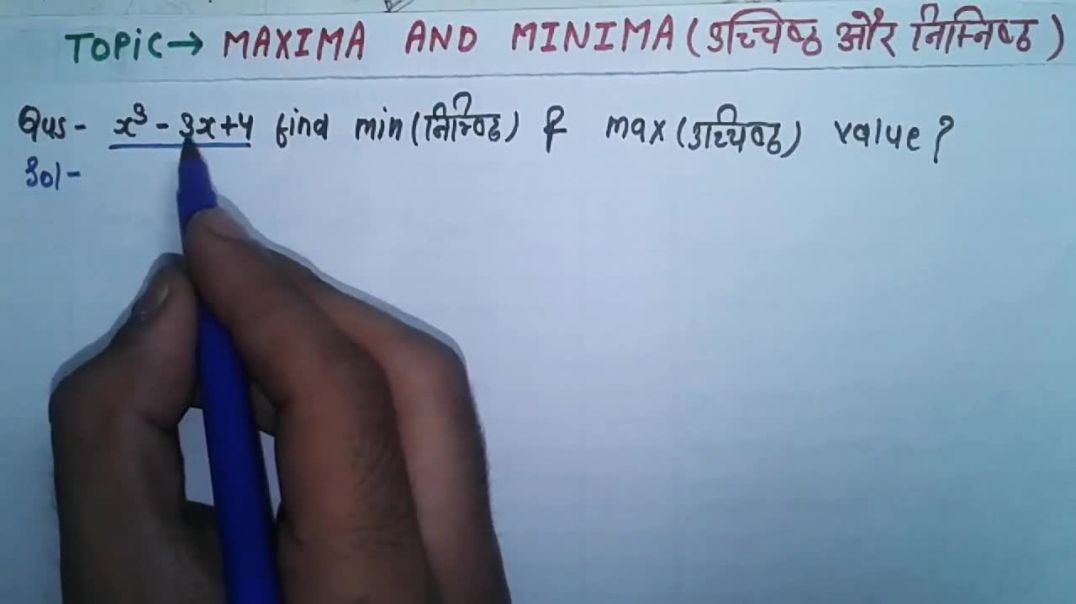 TOPIC→ MAXIMA AND MINIMA (उच्चिष्ठ और निम्निष्ठ)
Qus- x³ - 3x+4 find min (निम्निष्ठ) & max (उच्चिष्ठ) value?
Sol-